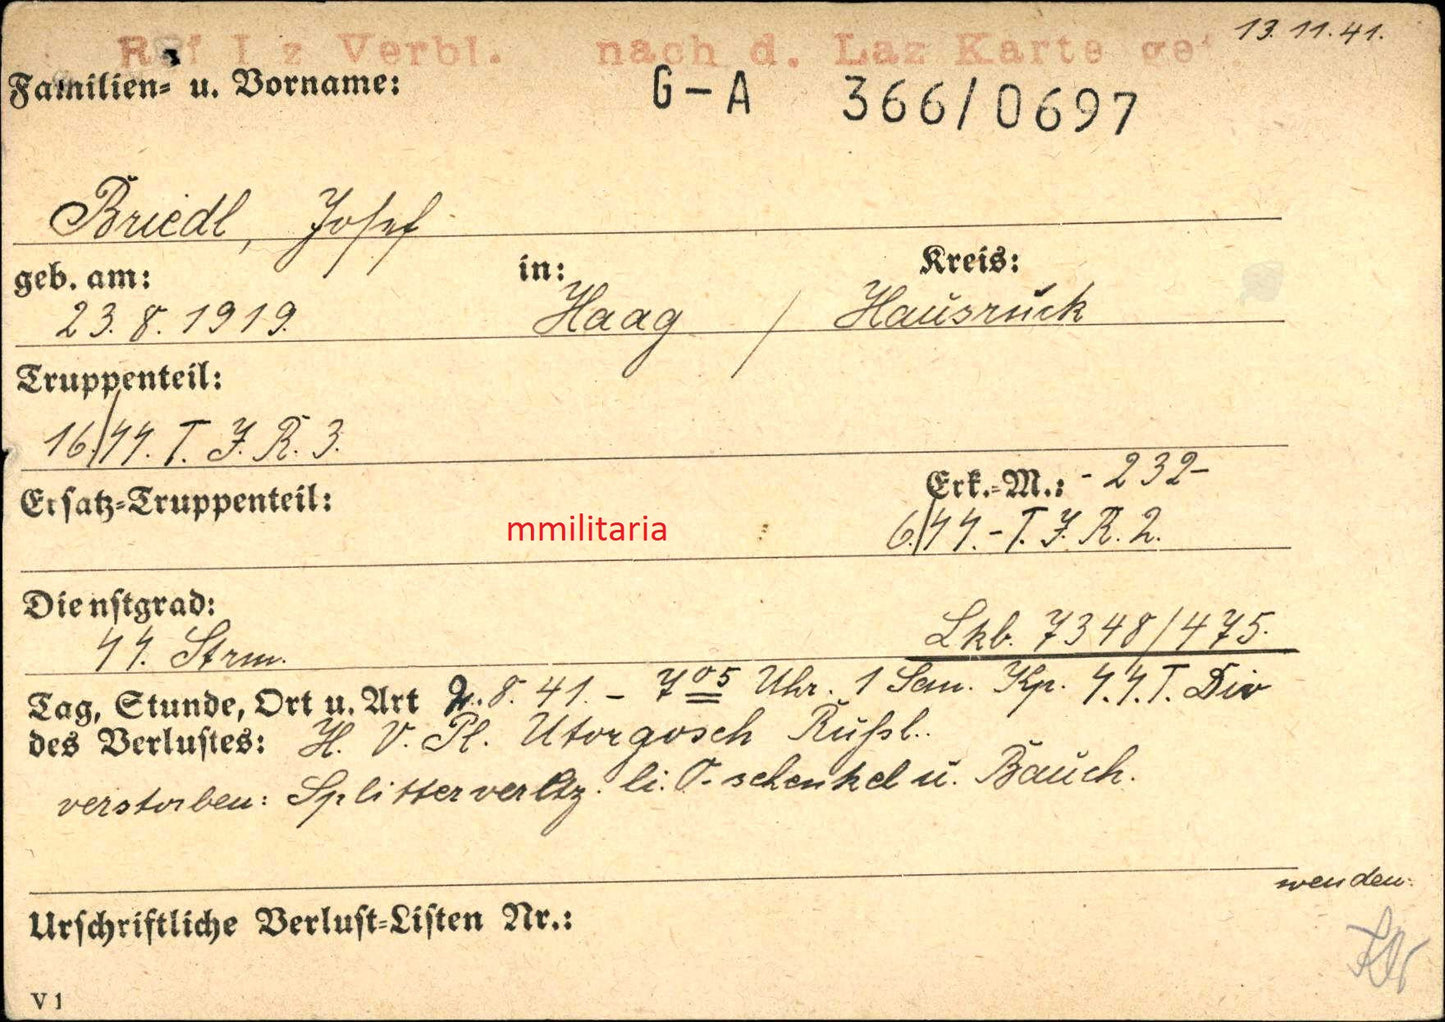 13.11.41.
Ref I z Verbl. nach d. Laz Karte ge
Familien- u. Vorname:
G-A 366/0697
Briedl, Josef
geb. am: in: Kreis:
23.8.1919. Haag / Hausruck
Truppenteil:
16/ϟϟ. T. J. R. 3.
Ersatz-Truppenteil: Erk.-M.: -232-
mmilitaria
6./ϟϟ.-T. J. R. 2.
Dienstgrad:
ϟϟ. Strm. Lkb. 7348/475.
Tag, Stunde, Ort u. Art 2.8.41. - 7⁰⁵ Uhr. 1 San. Kp. ϟϟ.T. Div
des Verlustes: H. V. Pl. Utorgosch Rußl.
verstorben: Splitterverltzg. li. O.-schenkel u. Bauch.
wenden.
Urschriftliche Verlust-Listen Nr.:
V 1